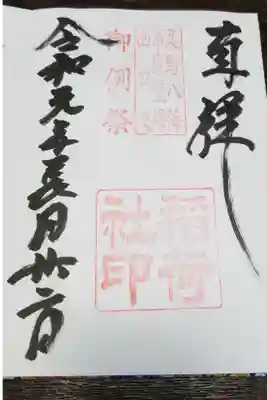 奉拝
御例祭
稲荷
社印
令和元年長月廿二日